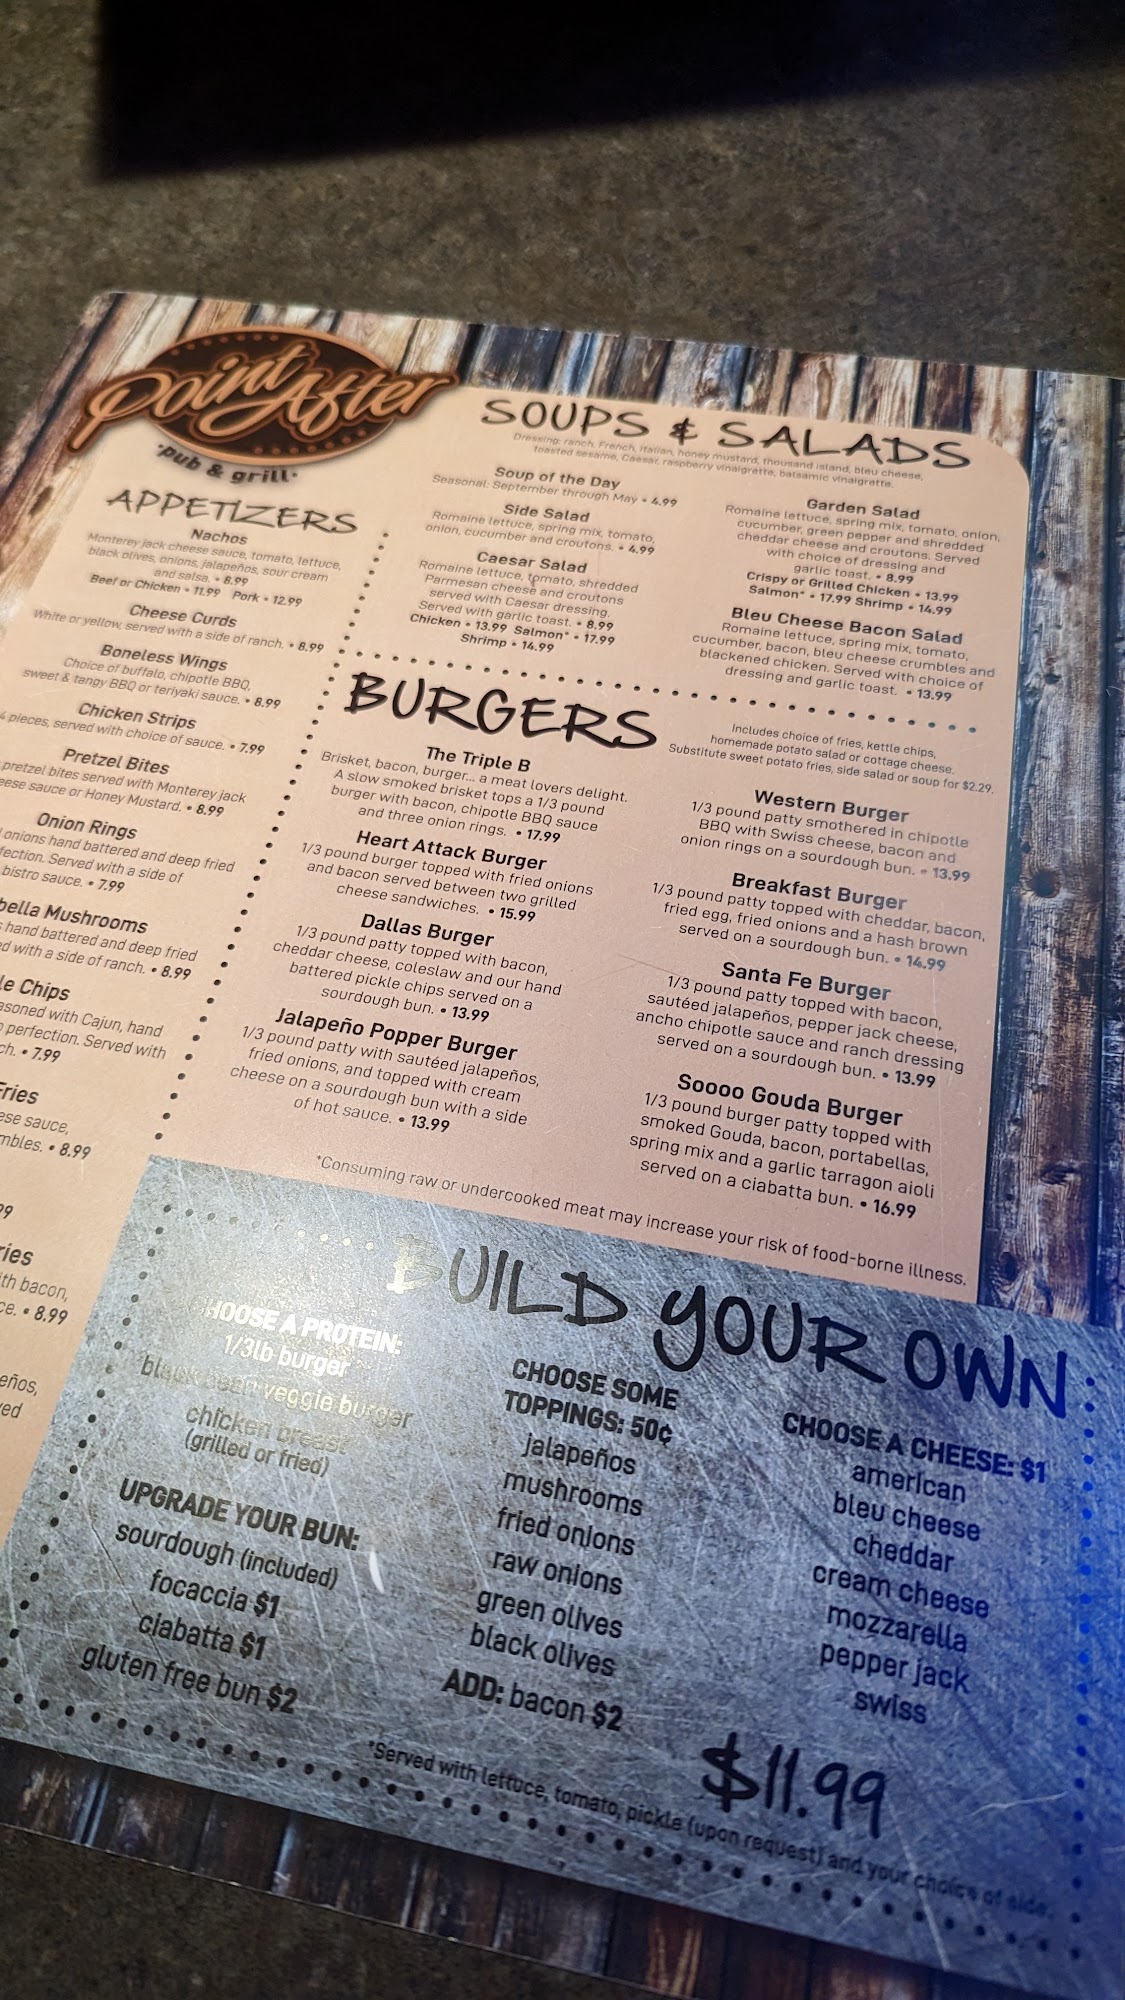 Point After
·pub & grill·
APPETIZERS
Nachos
Monterey jack cheese sauce, tomato, lettuce,
black olives, onions, jalapeños, sour cream
and salsa. • 8.99
Beef or Chicken • 11.99 Pork • 12.99
Cheese Curds
White or yellow, served with a side of ranch. • 8.99
Boneless Wings
Choice of buffalo, chipotle BBQ,
sweet & tangy BBQ or teriyaki sauce. • 8.99
Chicken Strips
4 pieces, served with choice of sauce. • 7.99
Pretzel Bites
pretzel bites served with Monterey jack
sauce or Honey Mustard. • 8.99
Onion Rings
onions hand battered and deep fried
Served with a side of
bistro sauce. • 7.99
Mushrooms
hand battered and deep fried
with a side of ranch. • 8.99
Chips
with Cajun, hand
perfection. Served with
• 7.99
Fries
sauce,
• 8.99
bacon,
• 8.99
SOUPS & SALADS
Dressing: ranch, French, Italian, honey mustard, thousand island, bleu cheese,
toasted sesame, Caesar, raspberry vinaigrette, balsamic vinaigrette.
Soup of the Day
Seasonal: September through May • 4.99
Side Salad
Romaine lettuce, spring mix, tomato,
onion, cucumber and croutons. • 4.99
Caesar Salad
Romaine lettuce, tomato, shredded
Parmesan cheese and croutons
served with Caesar dressing.
Served with garlic toast. • 8.99
Chicken • 13.99 Salmon* • 17.99
Shrimp • 14.99
Garden Salad
Romaine lettuce, spring mix, tomato, onion,
cucumber, green pepper and shredded
cheddar cheese and croutons. Served
with choice of dressing and
garlic toast. • 8.99
Crispy or Grilled Chicken • 13.99
Salmon* • 17.99 Shrimp • 14.99
Bleu Cheese Bacon Salad
Romaine lettuce, spring mix, tomato,
cucumber, bacon, bleu cheese crumbles and
blackened chicken. Served with choice of
dressing and garlic toast. • 13.99
BURGERS
Includes choice of fries, kettle chips,
homemade potato salad or cottage cheese.
Substitute sweet potato fries, side salad or soup for $2.29.
The Triple B
Brisket, bacon, burger... a meat lovers delight.
A slow smoked brisket tops a 1/3 pound
burger with bacon, chipotle BBQ sauce
and three onion rings. • 17.99
Heart Attack Burger
1/3 pound burger topped with fried onions
and bacon served between two grilled
cheese sandwiches. • 15.99
Dallas Burger
1/3 pound patty topped with bacon,
cheddar cheese, coleslaw and our hand
battered pickle chips served on a
sourdough bun. • 13.99
Jalapeño Popper Burger
1/3 pound patty with sautéed jalapeños,
fried onions, and topped with cream
cheese on a sourdough bun with a side
of hot sauce. • 13.99
Western Burger
1/3 pound patty smothered in chipotle
BBQ with Swiss cheese, bacon and
onion rings on a sourdough bun. • 13.99
Breakfast Burger
1/3 pound patty topped with cheddar, bacon,
fried egg, fried onions and a hash brown
served on a sourdough bun. • 14.99
Santa Fe Burger
1/3 pound patty topped with bacon,
sautéed jalapeños, pepper jack cheese,
ancho chipotle sauce and ranch dressing
served on a sourdough bun. • 13.99
Soooo Gouda Burger
1/3 pound burger patty topped with
smoked Gouda, bacon, portabellas,
spring mix and a garlic tarragon aioli
served on a ciabatta bun. • 16.99
*Consuming raw or undercooked meat may increase your risk of food-borne illness.
BUILD YOUR OWN
CHOOSE A PROTEIN:
1/3lb burger
black bean veggie burger
chicken breast
(grilled or fried)
UPGRADE YOUR BUN:
sourdough (included)
focaccia $1
ciabatta $1
gluten free bun $2
CHOOSE SOME
TOPPINGS: 50¢
jalapeños
mushrooms
fried onions
raw onions
green olives
black olives
ADD: bacon $2
CHOOSE A CHEESE: $1
american
bleu cheese
cheddar
cream cheese
mozzarella
pepper jack
swiss
$11.99
*Served with lettuce, tomato, pickle (upon request) and your choice of side.